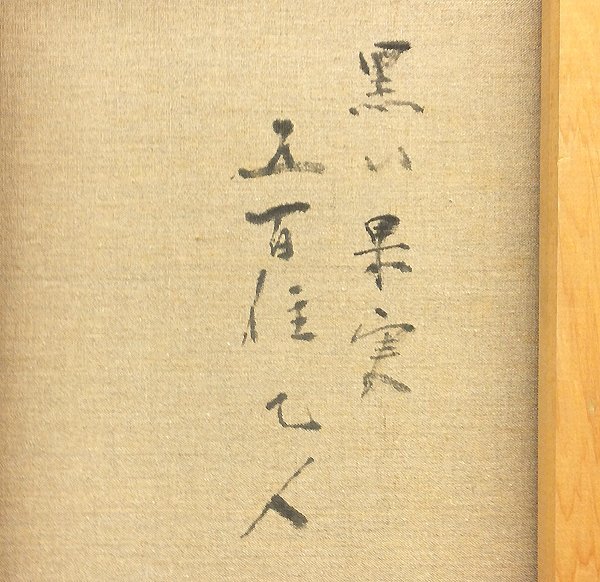 黒い果実
五百住乙人